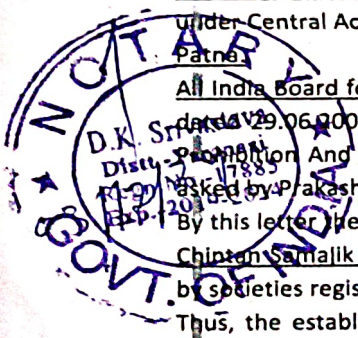 under Central Ac
Patna,
All India Board fo
dated 29.06.200
Prohibition And
asked by Prakash
By this letter the
Chintan Samajik
by societies regis
Thus, the establ
NOTARY
D.K. Srivastava
GOVT. OF INDIA